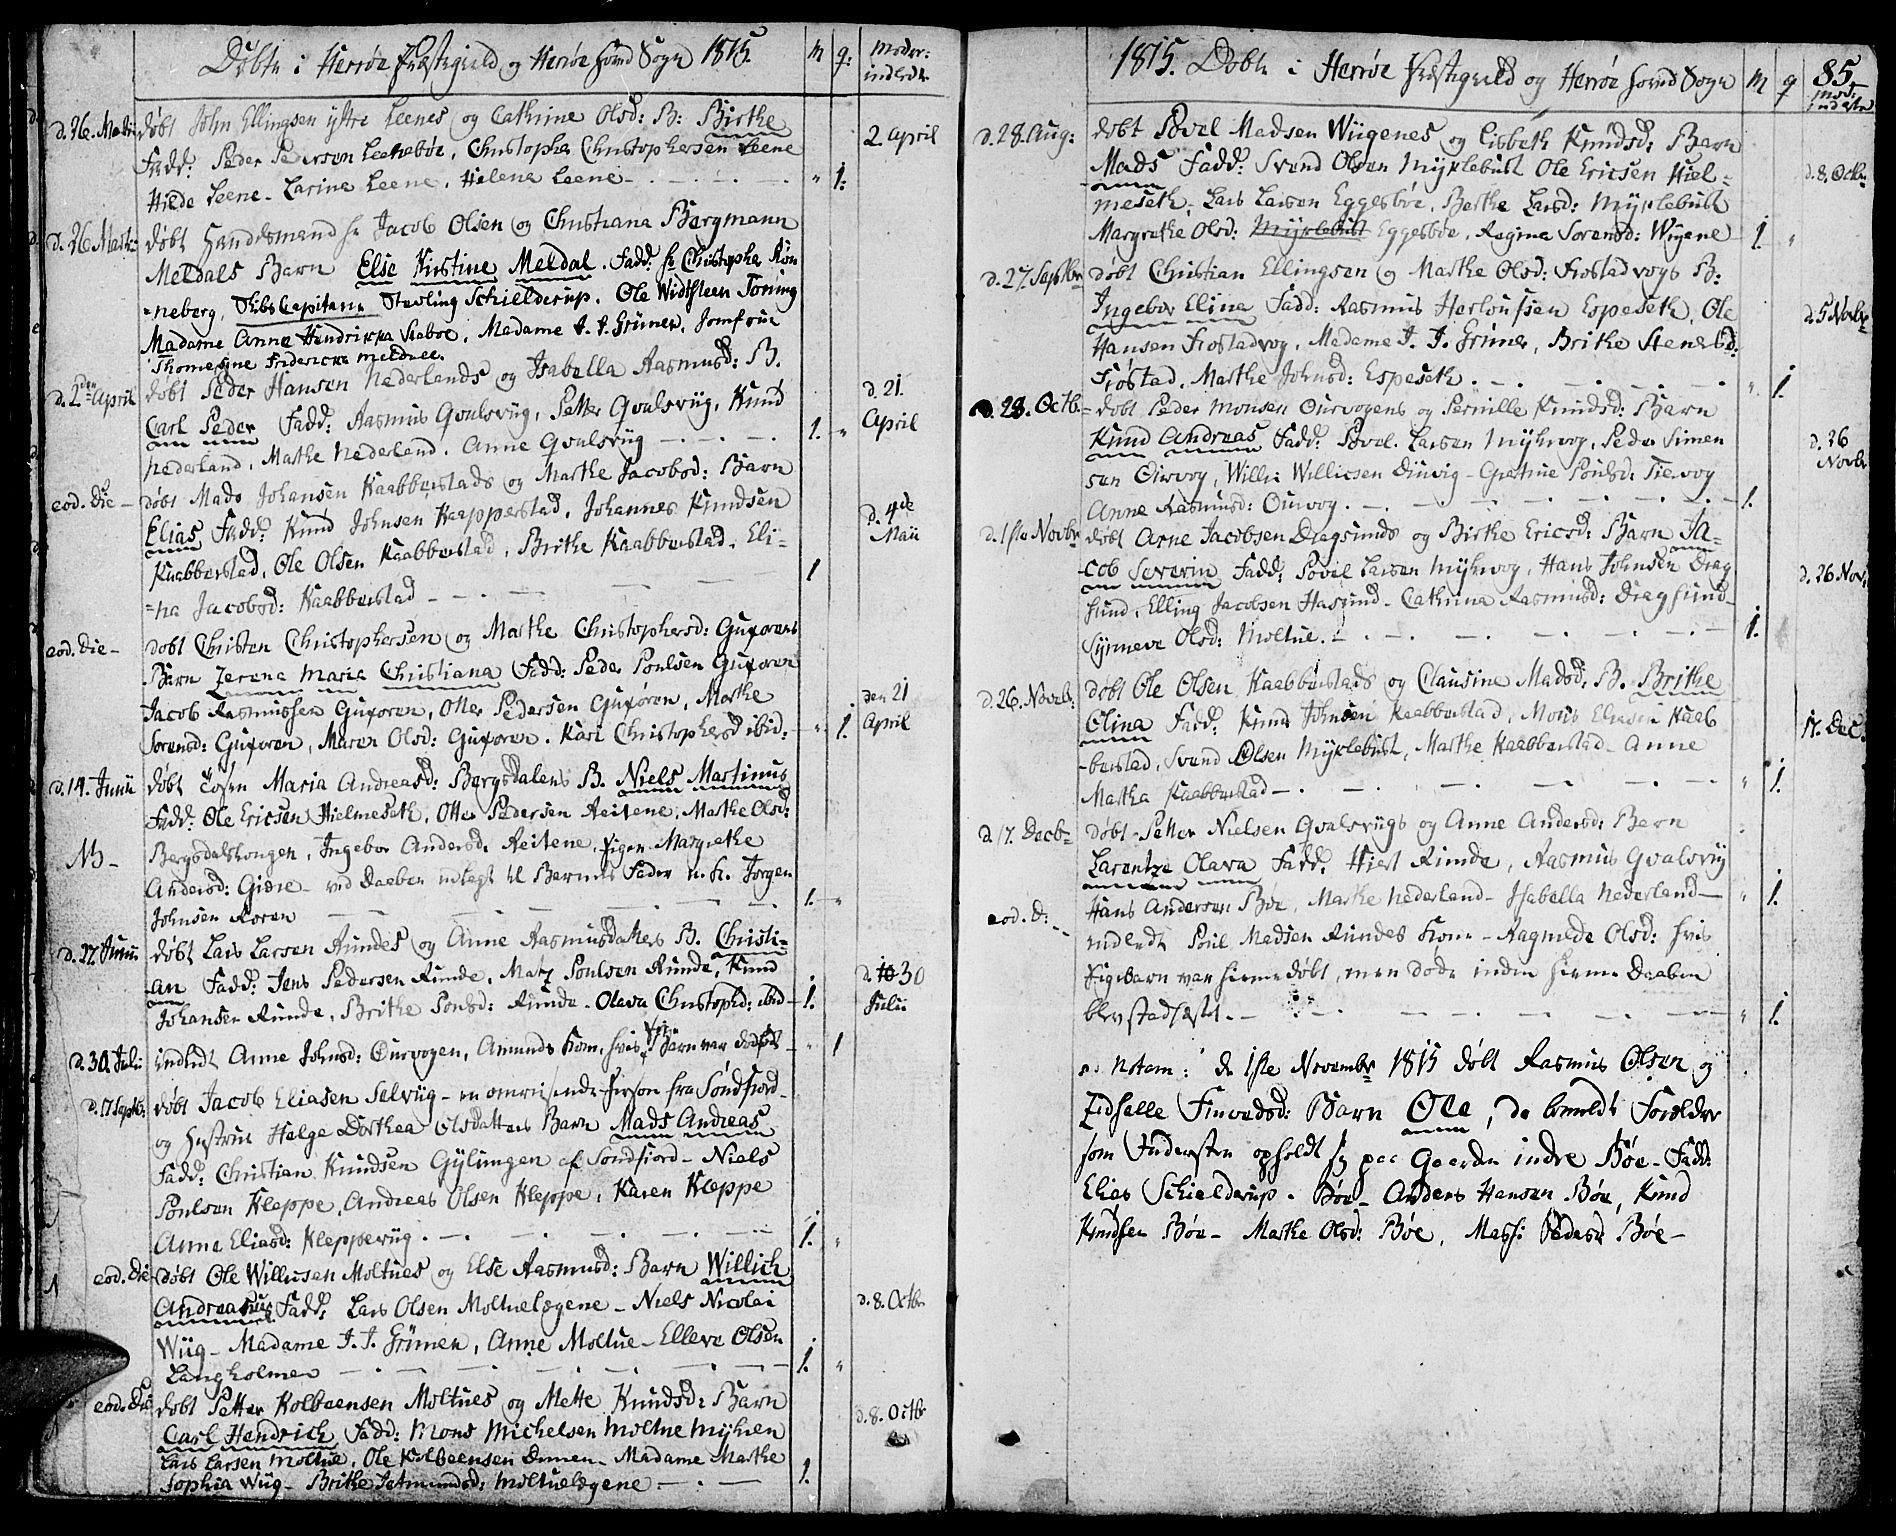 Døbte i Herrøe Præstegield og Herrøe hoved Sogn 1815. M q: Moder: indledn
d. 26. Martii døbt John Ellingsen yttre Leenes og Cathrine Olsd: B: Birthe 2. April
Fadd: Peder Pedersen Leenebøe, Christopher Christophersen Leene
Hilde Leene - Larine Leene, Helene Leene - " 1.
d. 26 Martii døbt Handelsmand Hr Jacob Olsen og Christiana Bergmann
Meldals Barn Else Kirstine Meldal. Fadd: Hr Christopher Røn
=neberg, Skibs Capitain Stavling Schielderup, Ole Widtsteen Toning
Madame Anne Hendrikka Siaboe, Madame J. J. Grüner, Jomfrue
Thomasine Fredericke Meldal.
d. 2den April døbt Peder Hansen Nederlands og Isabella Rasmusd: B. d. 21.
Carl Peder Fadd: Rasmus Qvalsviig, Petter Qvalsviig, Knud 1. " April
Nederland, Marthe Nederland. Anne Qvalsviig
eod. die - døbt Mads Johansen Kaabberstads og Marthe Jacobsd: Barn
Elias Fadd: Knud Johnsen Kaapperstad, Johannes Knudsen d. 4de Maii
Kaabberstad, Ole Olsen Kaabberstad, Birthe Kaabberstad, Eli- 1
=na Jacobsd: Kaabberstad
eod. die - døbt Christen Christophersen og Marthe Christophersd: Gurørens
Barn Zerena Maria Christiana Fadd: Peder Poulsen Gurøren
Jacob Rasmussen Gurøren, Otter Pedersen Gurøren, Marthe den 21
Sørensd: Gurøren, Maren Olsd: Gurøren. Kari Christophersd ibid: " 1. April
d. 14. Junii døbt Maria Andreasd: Bergsdalens B. Niels Martinus
Fadd: Ole Ericsen Hielmeseth, Otter Pedersen Reitene, Marthe Olsd:
NB - Bergsdal, Ingebor Andersd: Reitene, Pigen Margrethe
Andersd: Giøre - ved Daaben udlagt til Barnets Fader u. k. Jørgen
Johnsen Roren 1. "
d. 27 Junii døbt Lars Larsen Rundes og Anne Rasmusdatters B. Christi=
an Fadd: Jens Pedersen Runde, Matz Poulsen Runde, Knud d. 30
Johansen Runde, Birthe Poulsd: Runde - Olava Christophd: ibid - 1. Julii
d. 30. Juli: indledt Anne Johnsd: Ourvogen, Amunds Kone, hvis Barn var dødfød - " 1
d. 17 Septb: døbt Jacob Eliasen Selviig - en omreisende Person fra Søndfiord
og Hustrue Helge Dorthea Olsdatters Barn Mads Andreas
Fadd: Christian Knudsen Gylingen af Søndfiord - Niels
Poulsen Kleppe, Andreas Olsen Kleppe, Karen Kleppe
Anne Eliasd: Kleppeviig. 1. "
eod. die døbt Ole Willicsen Moltues og Else Rasmusd: Barn Willich
Andreas Fadd: Lars Olsen Moltueløgene - Niels Nicolai d. 8. Octbr
Wiig - Madame J. J. Grüner, Anne Moltue - Elleve Olsen
Langholmen 1. "
eod. die døbt Petter Kolbeensen Moltues og Mette Knudsd: Barn
Carl Hendrich Fadd: Mons Michelsen Moltue Myhren d. 8. Octbr
Lars Larsen Moltue, Ole Kolbeensen - Madame Marthe
Sophia Wiig - Birthe Jetmundsd: Moltueløgene 1.
1815. Døbte i Herrøe Præstegield og Herrøe hoved Sogn M q 85. mod: indledn
d. 28. Aug: døbt Povel Madsen Wiigenes og Lisbeth Knudsd: Barn
Mads Fadd: Svend Olsen Myklebust Ole Ericsen Hiel= d. 8. Octbr
meseth, Lars Larsen Eggesbøe, Berthe Larsd: Myklebust
Margrethe Olsd: Myklebust Eggesbøe, Ragna Sørensd: Wigene 1. "
d. 27. Septbr døbt Christian Ellingsen og Marthe Olsd: Frøstadvogs B:
Ingebor Elina Fadd: Rasmus Herloufsen Espeseth, Ole d. 5 Novbr
Hansen Frøstadvog, Madame J. J. Grüner, Birthe Steensd:
Frøstad, Marthe Johnsd: Espeseth. " 1.
d. 28. Octb. døbt Peder Monsen Ourvogens og Pernille Knudsd: Barn
Knud Andreas, Fadd: Povel Larsen Myhrvog, Peder Simen d. 26 Novbr
sen Ourvog, Willic Willicsen Dimvig - Poulsd: Tiervog
Anne Rasmusd: Ourvog. 1.
d. 1ste Novbr døbt Arne Jacobsen Dragsunds og Birthe Ericsd: Barn Ja=
cob Severin Fadd: Povel Larsen Myhrvog, Hans Johnsen Drag d. 26 Nov:
sund, Elling Jacobsen Hasund - Cathrina Rasmusd: Dragsund
Synneve Olsd: Moltue. 1.
d. 26. Novb: døbt Ole Olsen Kaabberstads og Clausine Madsd: B. Brithe
Elina Fadd: Knud Johnsen Kaabberstad, Mons Elissen Kaab 17. Dec.
berstad, Svend Olsen Myklebust, Marthe Kaabberstad - Anne
Martha Kaabberstad " 1.
d. 17. Decb: døbt Petter Nielsen Qvalsviigs og Anne Andersd: Barn
Larentze Olava Fadd: Hiert Runde, Rasmus Qvalsviig
Hans Andersen Bøe, Marthe Nederland - Isabella Nederland " 1.
eod. d: indledt Poul Madsen Rundes Kone - Ragnilde Olsd: hvis
Pigebarn var hiemmedøbt, men døde inden hiemme Daaben
blev stadfæstet. " 1.
Notam: d. 1ste Novembr 1815 døbt Rasmus Olsen og
Zidselle Finwedsd: Barn Ole, de bemeldte Forældre
som Inderster opholdt sig paa Gaarden indre Bøe - Fadd:
Elias Schielderup. Bøe - Anders Hansen Bøe, Knud
Knudsen Bøe - Marthe Olsd: Bøe, Mass: Pedersd Bøe -